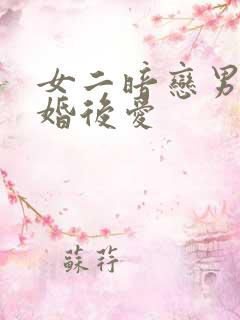 女二暗戀男
婚後愛
蘇荇